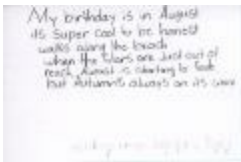 My birthday is in August
its super cool to be honest
walks along the beach
when the stars are just out of
reach, August is starting to fade
but Autumn's always on its